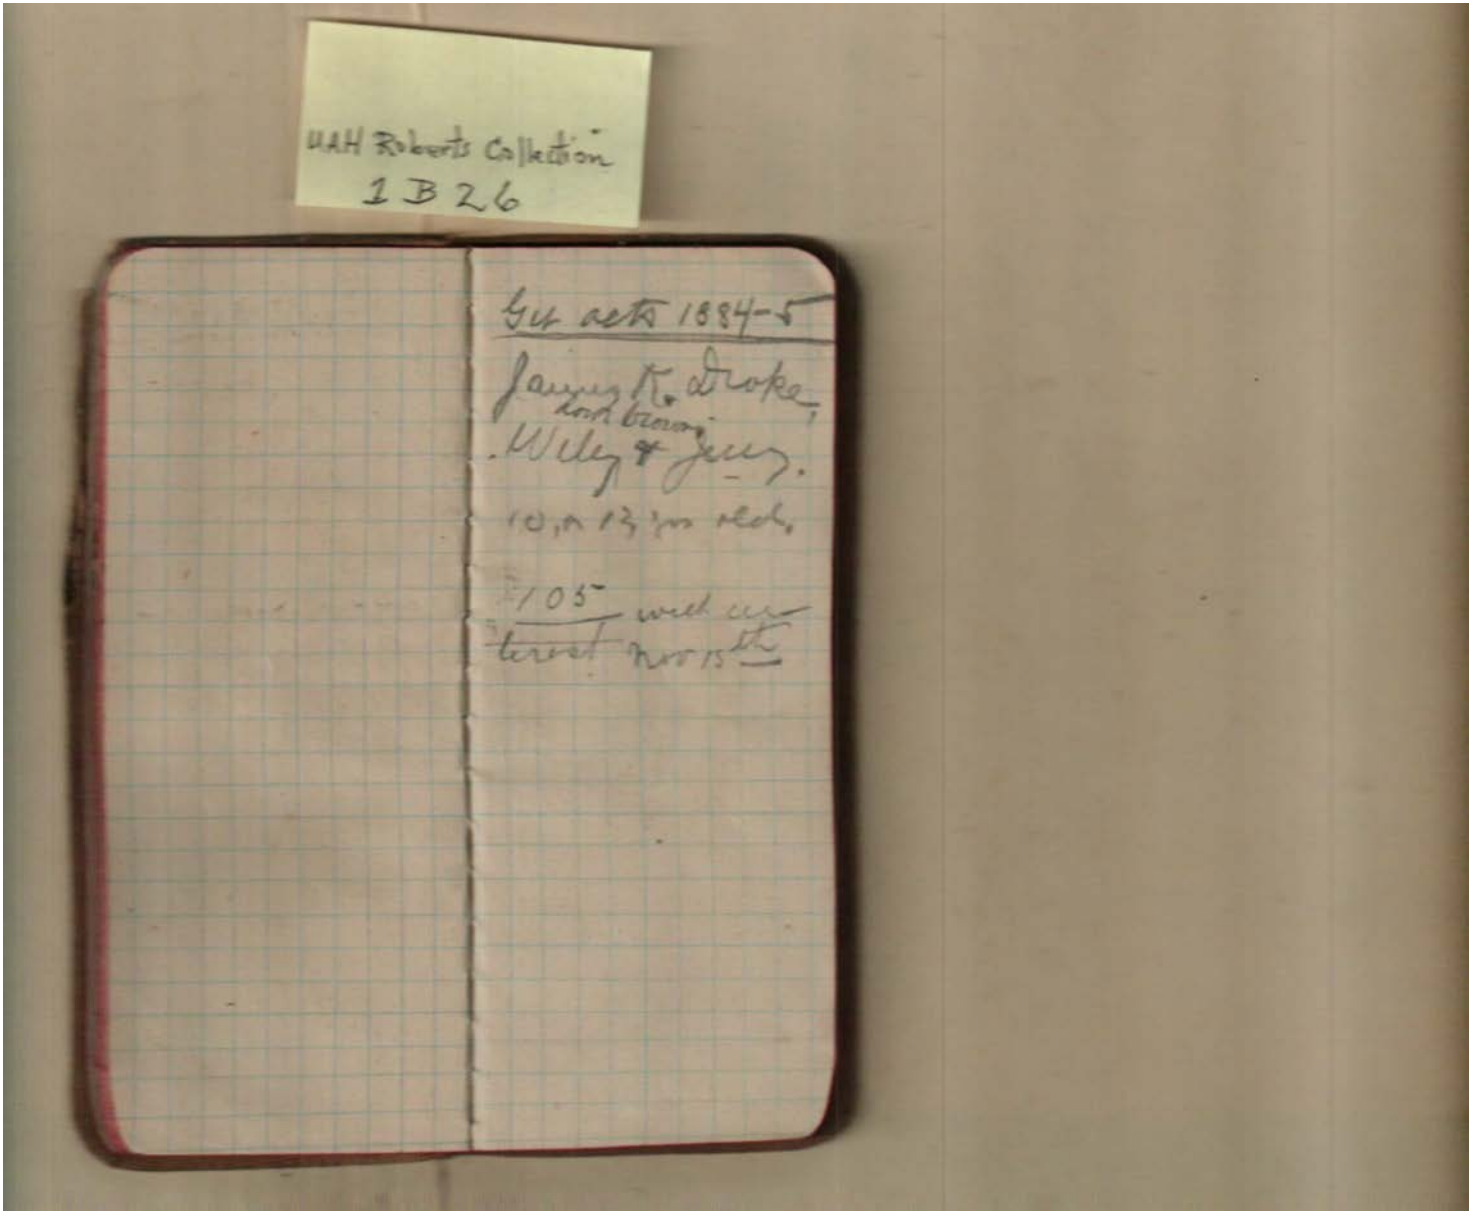 UAH Roberts Collection
1 B 26
Get acts 1884-5
James K. Drake,
dark brown
Wiley & Jerry.
10, or 12 yrs old.
105 with in
terest Nov 15th